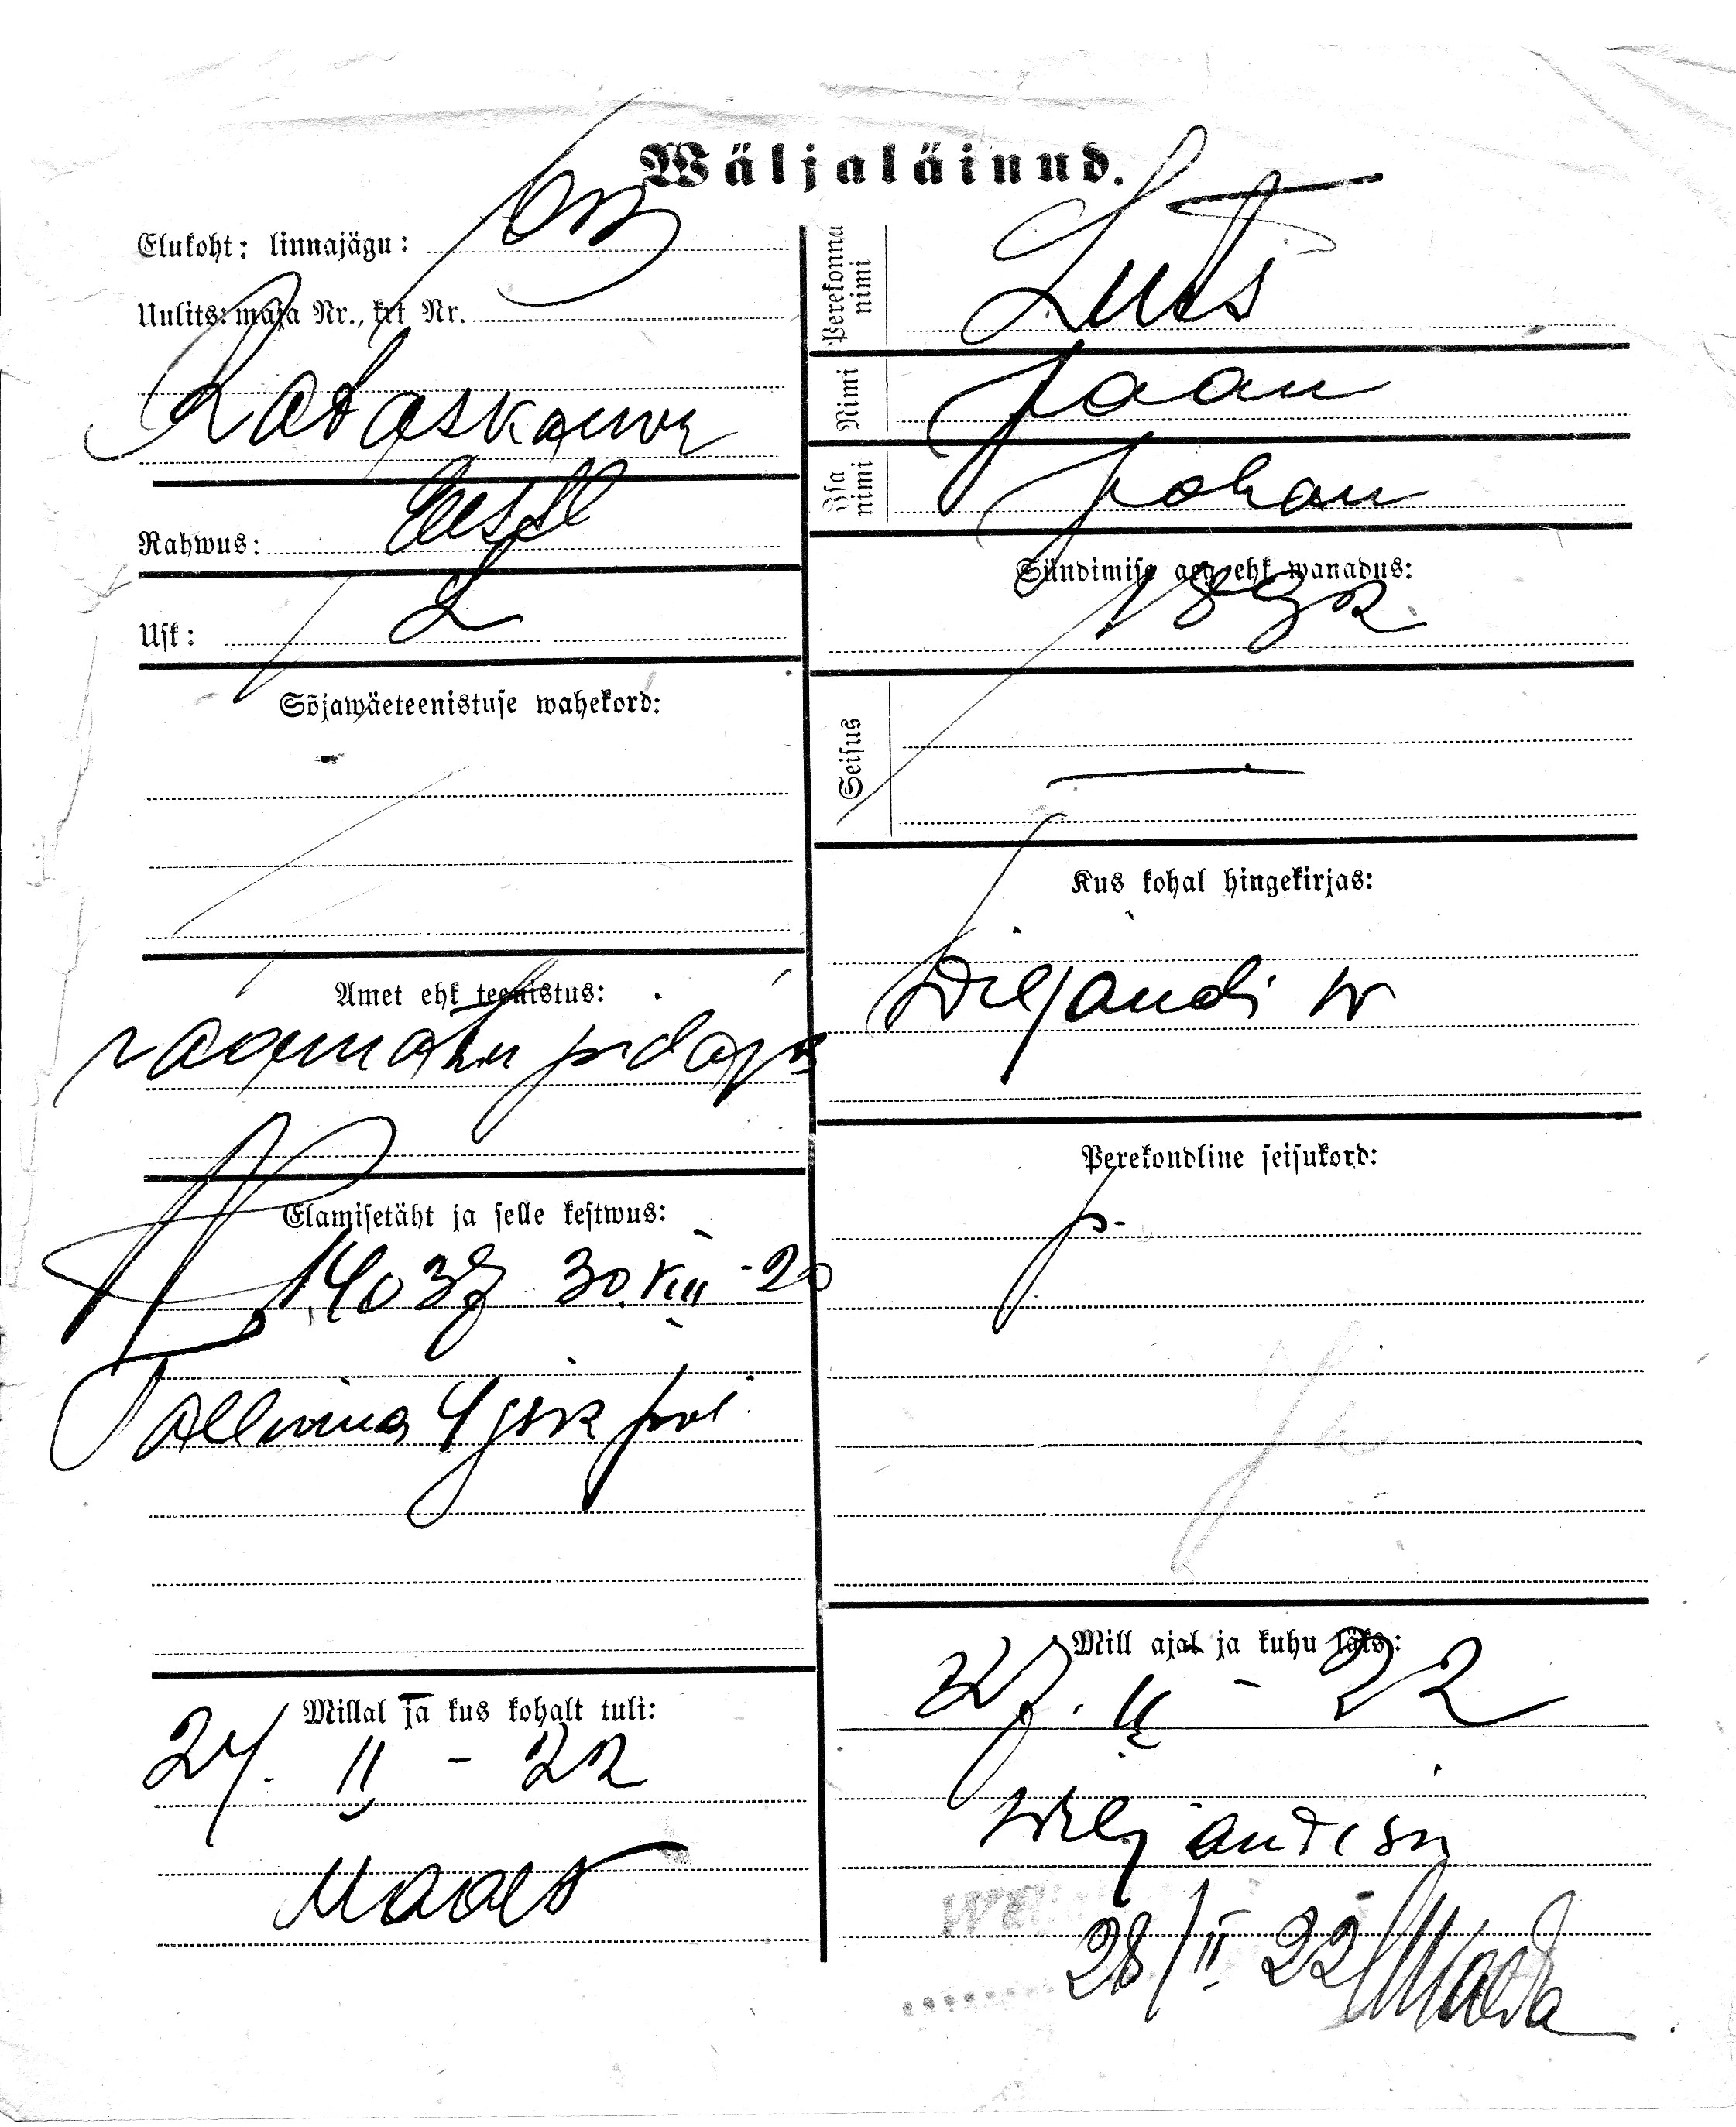 Wäljaläinud.
Elukoht: linnajägu:
Uulits: maja Nr., krt Nr.
Rataskaewu
Rahwus: Eesti
Usk: L
Sõjawäeteenistuse wahekord:
Amet ehk teenistus:
raamatu pidaja
Elamisetäht ja selle kestwus:
14037 30.VIII-20
Tallinna 4 jsk
Millal ja kus kohalt tuli:
24. II - 22
Maalt
Perekonna nimi Luts
Nimi Jaan
Isa nimi Johan
Sündimise aeg ehk wanadus:
Seisus —
Kus kohal hingekirjas:
Wiljandi w
Perekondline seisukord:
p.
Mill ajal ja kuhu läks:
27. II - 22
Wiljandisse
28/II 22